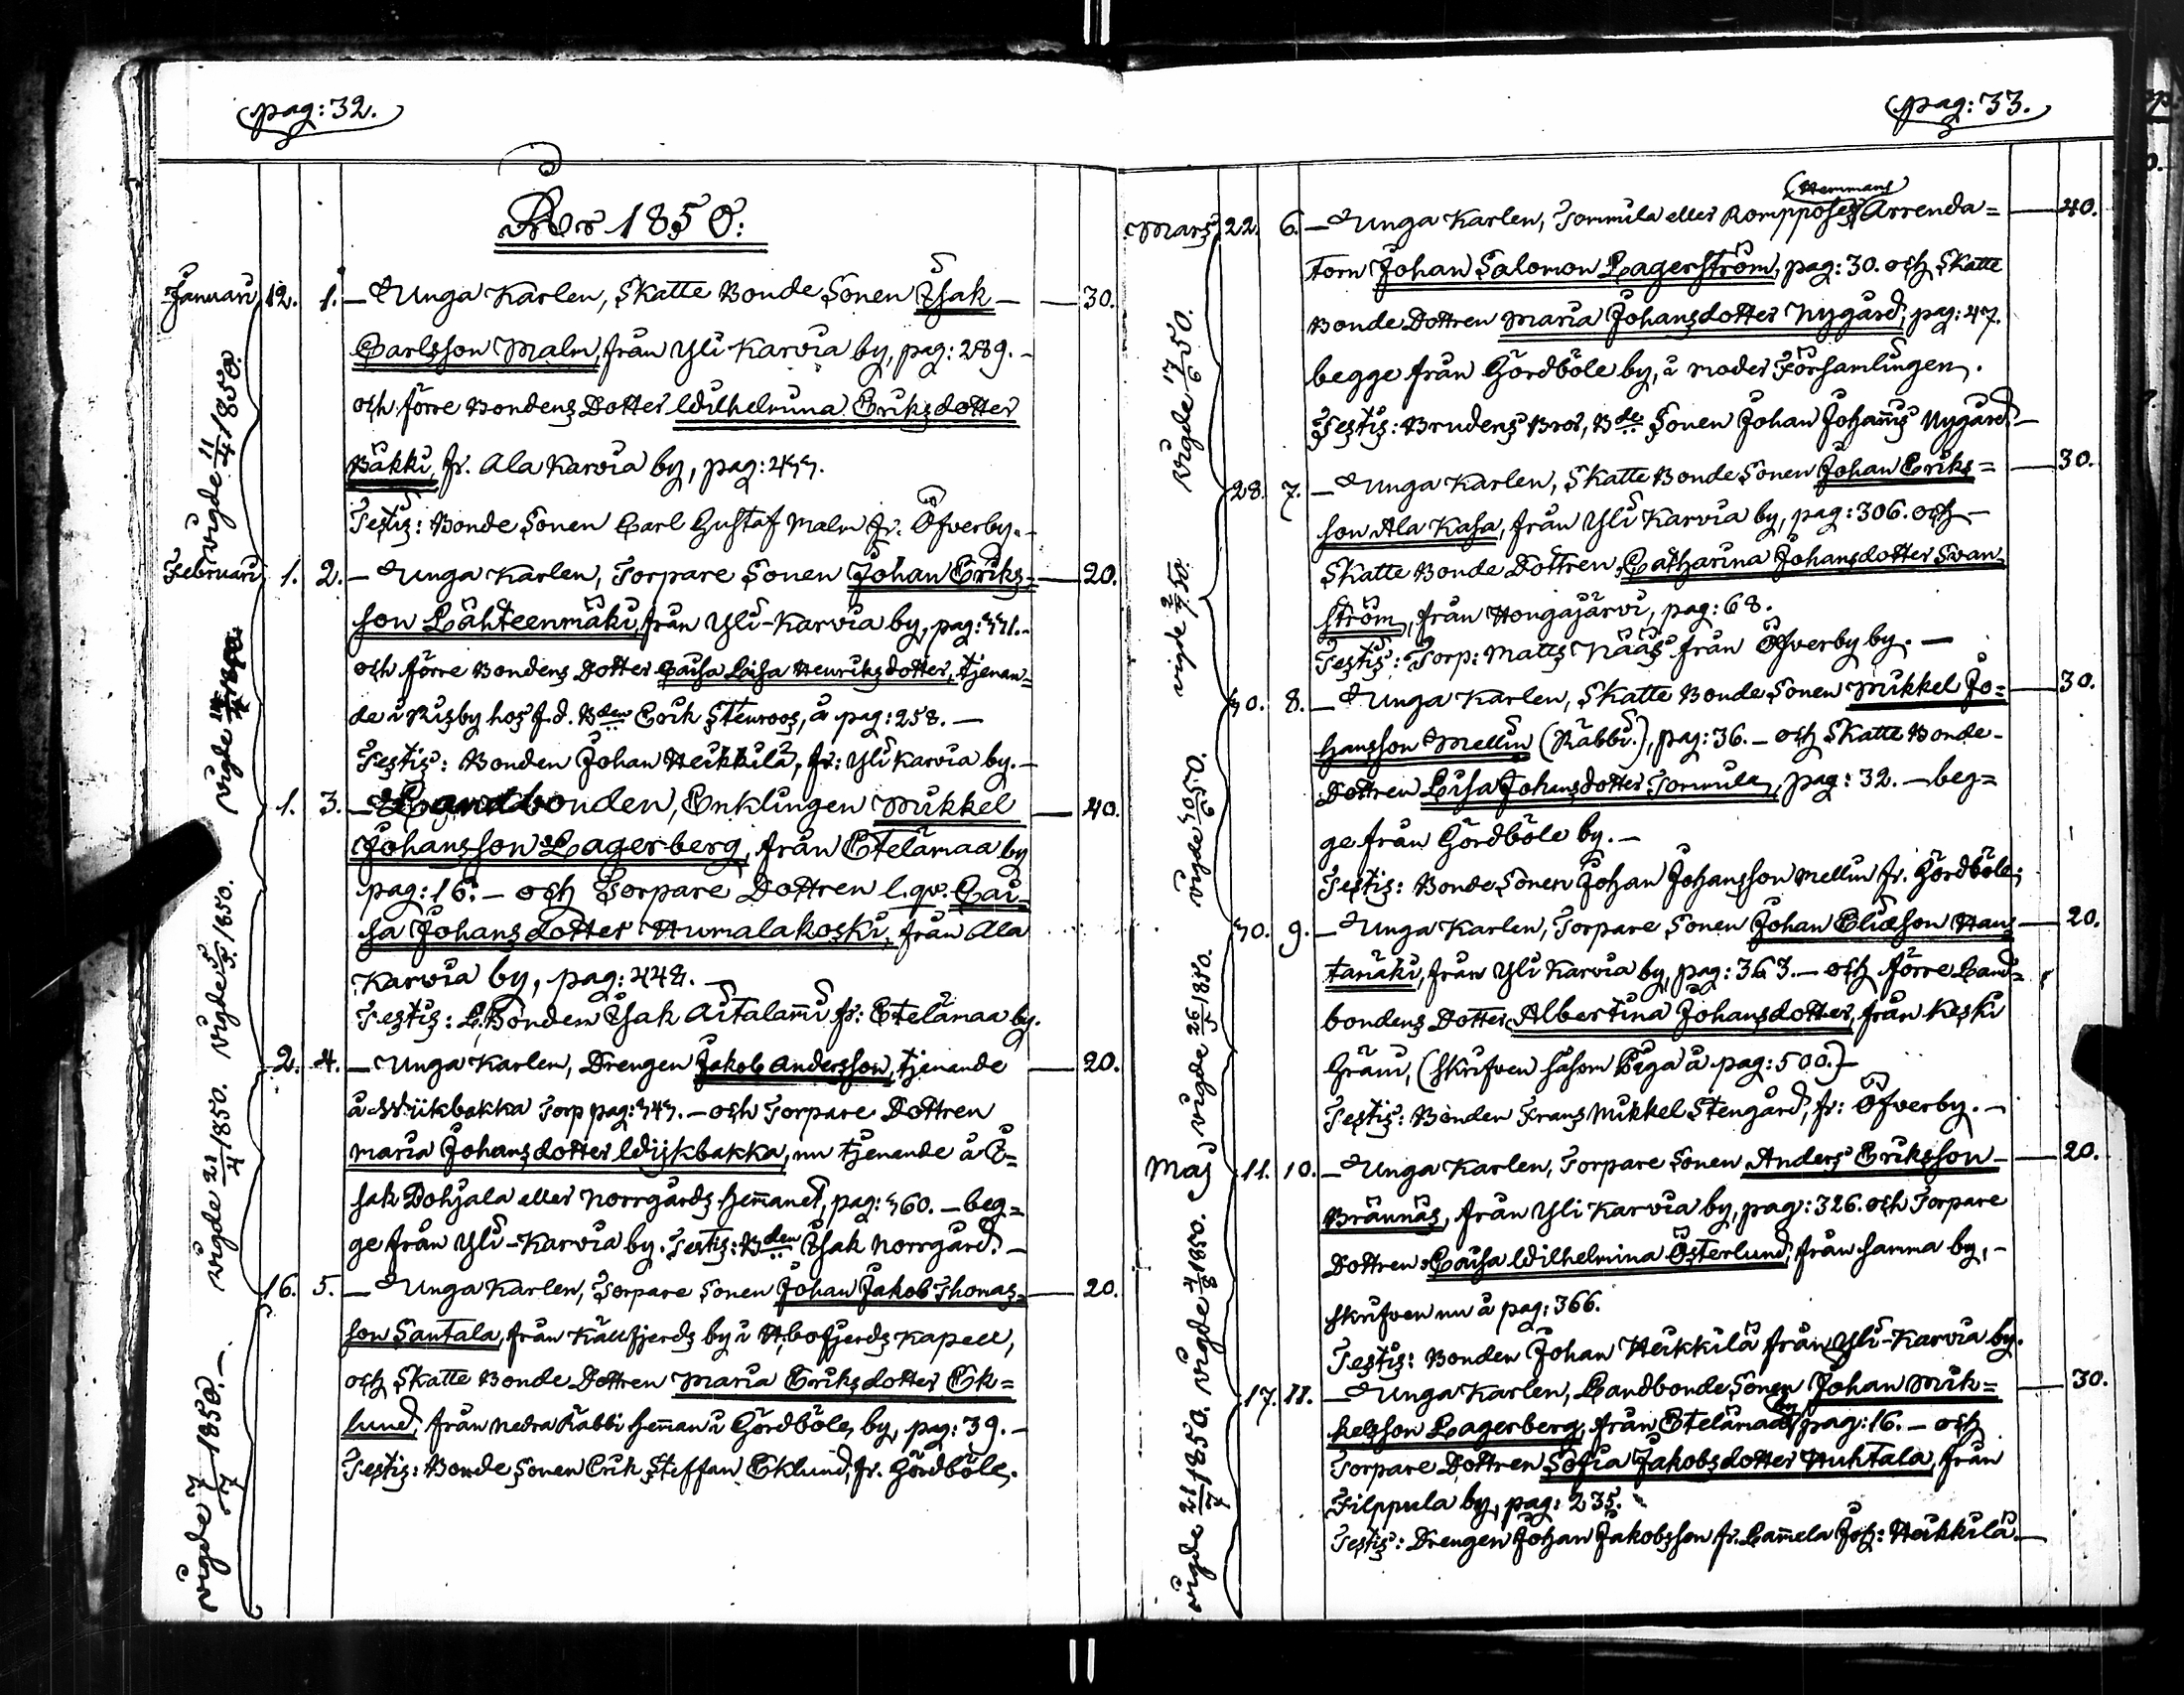 pag: 32.
År 1850:
Januari 12. 1. — Unga Karlen, Skatte Bonde Sonen Isak — 30.
Carlsson Malm, från Yli Karvia by, pag: 289. -
och förre Bondens Dotter Wilhelmina Eriksdotter
Bäkki, fr. Ala Karvia by, pag: 477.
Testis: Bonde Sonen Carl Gustaf Malm fr. Öfverby. -
vigde 11/4 1850.
Februari 1. 2. — Unga Karlen, Torpare Sonen Johan Eriks= 20.
son Lähteenmäki, från Yli-Karvia by, pag: 371. -
och förre Bondens Dotter Caisa Lisa Henriksdotter, tjenan=
de i Risby hos f.d. Bden Erik Stenroos, å pag: 258. —
Testis: Bonden Johan Heikkilä, fr: Yli Karvia by. -
vigde
1. 3. — Landbonden, Enklingen Mikkel — 40.
Johansson Lagerberg, från Etelämaa by
pag: 16. — och Torpare Dottren l. qv. Cai=
sa Johansdotter Humalakoski, från Ala
Karvia by, pag: 448. —
Testis: L.Bonden Isak Aitalammi fr: Etelämaa by.
vigde 5/5 1850.
2. 4. — Unga Karlen, Drengen Jakob Andersson, tjenande — 20.
å Wiikbakka Torp pag: 343. — och Torpare Dottren
Maria Johansdotter Wijkbakka, nu tjenande å I=
sak Dohjala eller Norrgårds hemanet, pag: 360. — beg=
ge från Yli-Karvia by. Testis: Bden Isak Norrgård. —
vigde 21/4 1850.
16. 5. — Unga Karlen, Torpare Sonen Johan Jakob Thomas= 20.
son Santala, från Källfjerds by i Hvbofjerds Kapell,
och Skatte Bonde Dottren Maria Eriksdotter Ek=
lund, från Nedra Räbbi heman i Gördböle by, pag: 39. —
Testis: Bonde Sonen Erik Steffan Eklund, fr. Gördböle.
vigde 7/7 1850. —
pag: 33.
Hemmans
Mars 22. 6. — Unga Karlen, Tommila eller Romppos Arrenda= 40.
torn Johan Salomon Lagerström, pag: 30. och Skatte
Bonde Dottren Maria Johansdotter Nygård, pag: 47.
begge från Gördböle by, i moder Församlingen.
Testis: Brudens Bror, Bde Sonen Johan Johans Nygård. —
vigde 17/6 50.
28. 7. — Unga Karlen, Skatte Bonde Sonen Johan Eriks= 30.
son Ala Kasa, från Yli Karvia by, pag: 306. och —
Skatte Bonde Dottren Catharina Johansdotter Svan
ström, från Hongajärvi, pag: 68.
Testis: Torp: Matts Nääs från Öfverby by. —
vigde
30. 8. — Unga Karlen, Skatte Bonde Sonen Mikkel Jo= 30.
hansson Mellin (Räbbi), pag: 36. — och Skatte Bonde-
Dottren Lisa Johansdotter Tommila, pag: 32. — beg=
ge från Gördböle by. —
Testis: Bonde Sonen Johan Johansson Mellin fr. Gördböle;
vigde 30/6 50.
30. 9. — Unga Karlen, Torpare Sonen Johan Eliæson Han 20.
tamäki, från Yli Karvia by, pag: 363. — och förre Land=
bondens Dotter Albertina Johansdotter, från Keski
Gräni, (skrifven såsom Piga å pag: 500.) —
Testis: Bonden Frans Mikkel Stengård, fr: Öfverby. —
vigde 26/5 1850.
Maj 11. 10. — Unga Karlen, Torpare Sonen Anders Eriksson — 20.
Brännäs, från Yli Karvia by, pag: 326. och Torpare
Dottren Caisa Wilhelmina Österlund, från samma by, —
skrifven nu å pag: 366.
Testis: Bonden Johan Heikkilä från Yli-Karvia by.
vigde 4/8 1850.
17. 11. — Unga Karlen, Landbonde Sonen Johan Mik= 30.
kelsson Lagerberg, från Etelämaa by pag: 16. — och
Torpare Dottren Sofia Jakobsdotter Huhtala, från
Filppula by, pag: 235.
Testis: Drengen Johan Jakobsson fr. Lamela Joh: Heikkilä. —
vigde 21/7 1850.